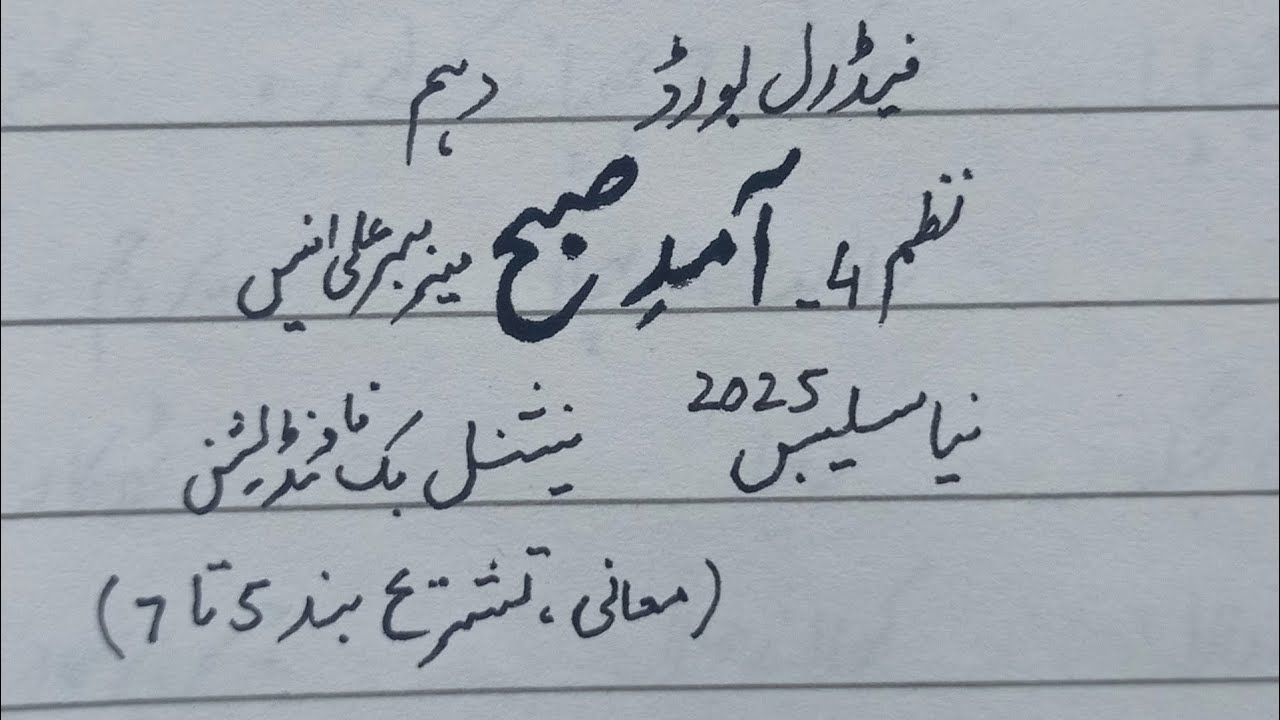 فیڈرل بورڈ دہم
نظم 4۔ آمدِ صبح میر ببر علی انیس
نیا سلیبس 2025 نیشنل بک فاونڈیشن
(معانی، تشریح بند 5 تا 7)